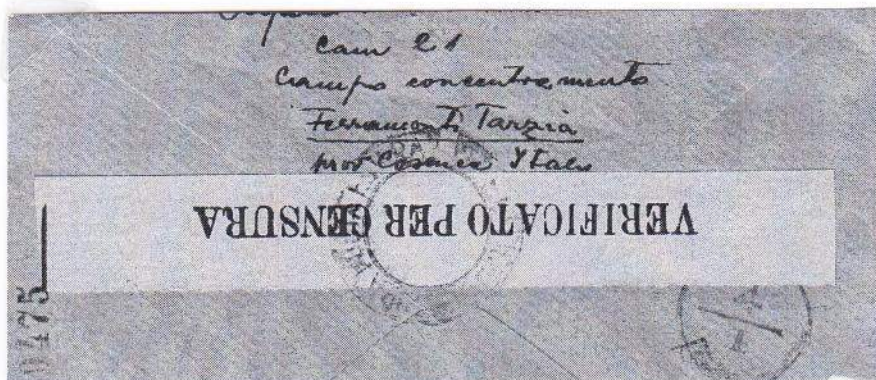 Cam C1
Campo concentramento
Ferramonti Tarzia
prov Cosenza Italy
VERIFICATO PER CENSURA
0475